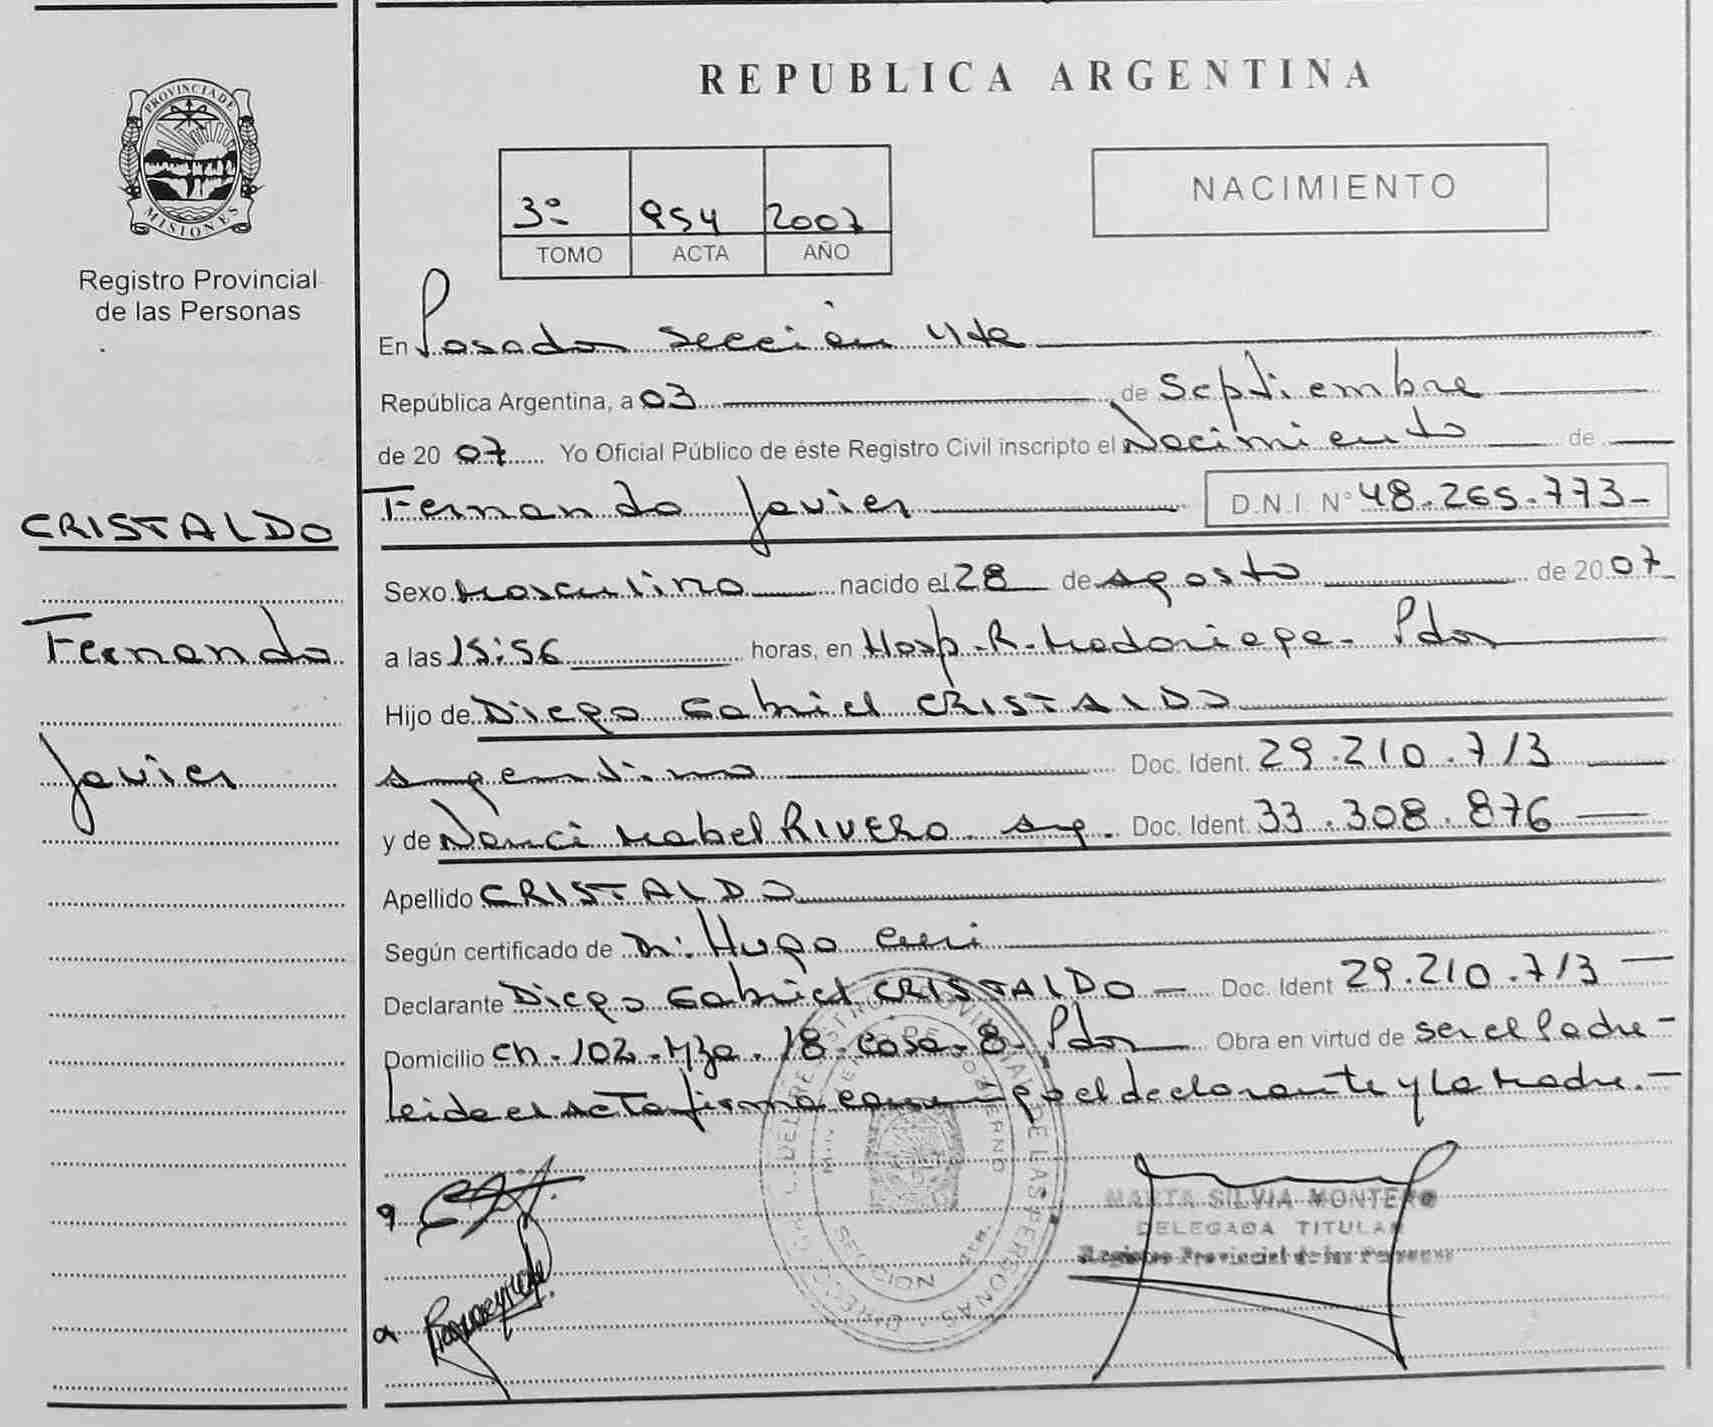 REPUBLICA ARGENTINA
PROVINCIA DE
MISIONES
Registro Provincial
de las Personas
NACIMIENTO
3º 954 2007
TOMO ACTA AÑO
En Posadas Sección 4ta
República Argentina, a 03 de Septiembre
de 2007 Yo Oficial Público de éste Registro Civil inscripto el Nacimiento de
Fernando Javier D.N.I. Nº 48.265.773-
CRISTALDO
Fernando
Javier
Sexo Masculino nacido el 28 de Agosto de 2007
a las 15:56 horas, en Hosp. R. Madariaga - Pdas
Hijo de Diego Gabriel CRISTALDO
Argentino Doc. Ident. 29.210.713
y de Nanci Mabel RIVERO. Arg. Doc. Ident. 33.308.876
Apellido CRISTALDO
Según certificado de Dr. Hugo
Declarante Diego Gabriel CRISTALDO - Doc. Ident 29.210.713
Domicilio Ch. 102. Mza. 18. Casa. 8. Pdas Obra en virtud de ser el Padre -
Leida el Acta firma conmigo el declarante y La Madre. -
MARTA SILVIA MONTERO
DELEGADA TITULAR
Registro Provincial de las Personas